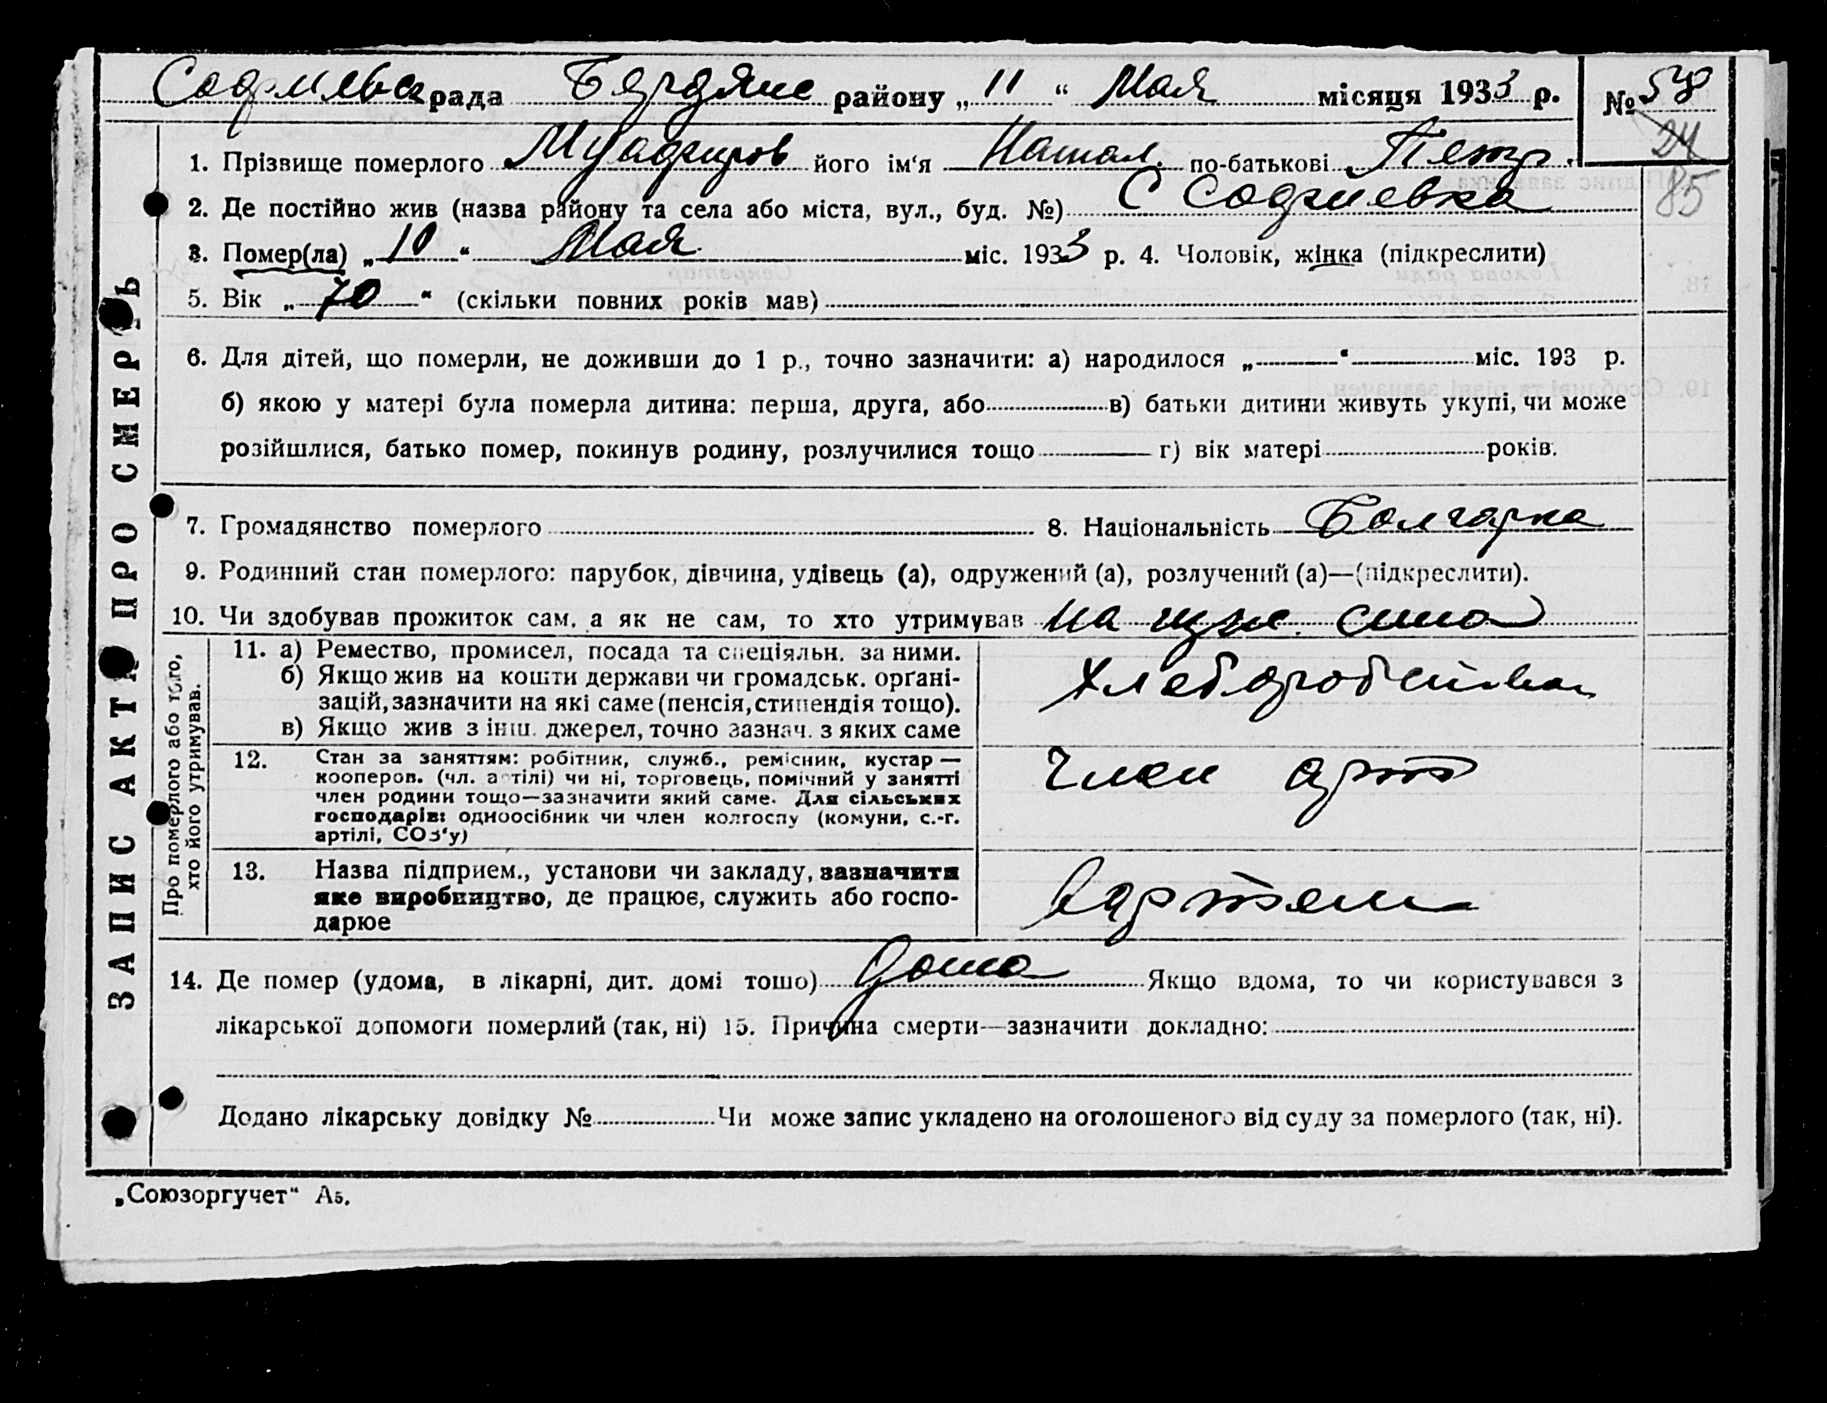 рада Бердянс району „11“ Мая місяця 1933 р. № 58
24
85
1. Прізвище померлого його ім'я Натал. по-батькові Петр.
2. Де постійно жив (назва району та села або міста, вул., буд. №) С Софиевка
3. Помер(ла) „10“ Мая міс. 1933 р. 4. Чоловік, жінка (підкреслити)
5. Вік „70“ (скільки повних років мав)
6. Для дітей, що померли, не доживши до 1 р., точно зазначити: а) народилося „ “ міс. 193 р.
б) якою у матері була померла дитина: перша, друга, або в) батьки дитини живуть укупі, чи може
розійшлися, батько помер, покинув родину, розлучилися тощо г) вік матері років.
7. Громадянство померлого 8. Національність Болгарка
9. Родинний стан померлого: парубок, дівчина, удівець (а), одружений (а), розлучений (а)—(підкреслити).
10. Чи здобував прожиток сам, а як не сам, то хто утримував на сина
ЗАПИС АКТУ ПРО СМЕРТЬ
Про померлого або того,
хто його утримував.
11. а) Ремество, промисел, посада та спеціяльн. за ними.
б) Якщо жив на кошти держави чи громадськ. орґані-
зацій, зазначити на які саме (пенсія, стипендія тощо).
в) Якщо жив з інш. джерел, точно зазнач. з яких саме
12. Стан за заняттям: робітник, служб., ремісник, кустар —
кооперов. (чл. артілі) чи ні, торговець, помічний у занятті
член родини тощо—зазначити який саме. Для сільських
господарів: одноосібник чи член колгоспу (комуни, с.-г.
артілі, СОЗ'у)
Член арт
13. Назва підприєм., установи чи закладу, зазначити
яке виробництво, де працює, служить або госпо-
дарюе
Вартели
14. Де помер (удома, в лікарні, дит. домі тошо) дома Якщо вдома, то чи користувався з
лікарської допомоги померлий (так, ні) 15. Причина смерти—зазначити докладно:
Додано лікарську довідку № Чи може запис укладено на оголошеного від суду за померлого (так, ні).
„Союзоргучет“ А5.